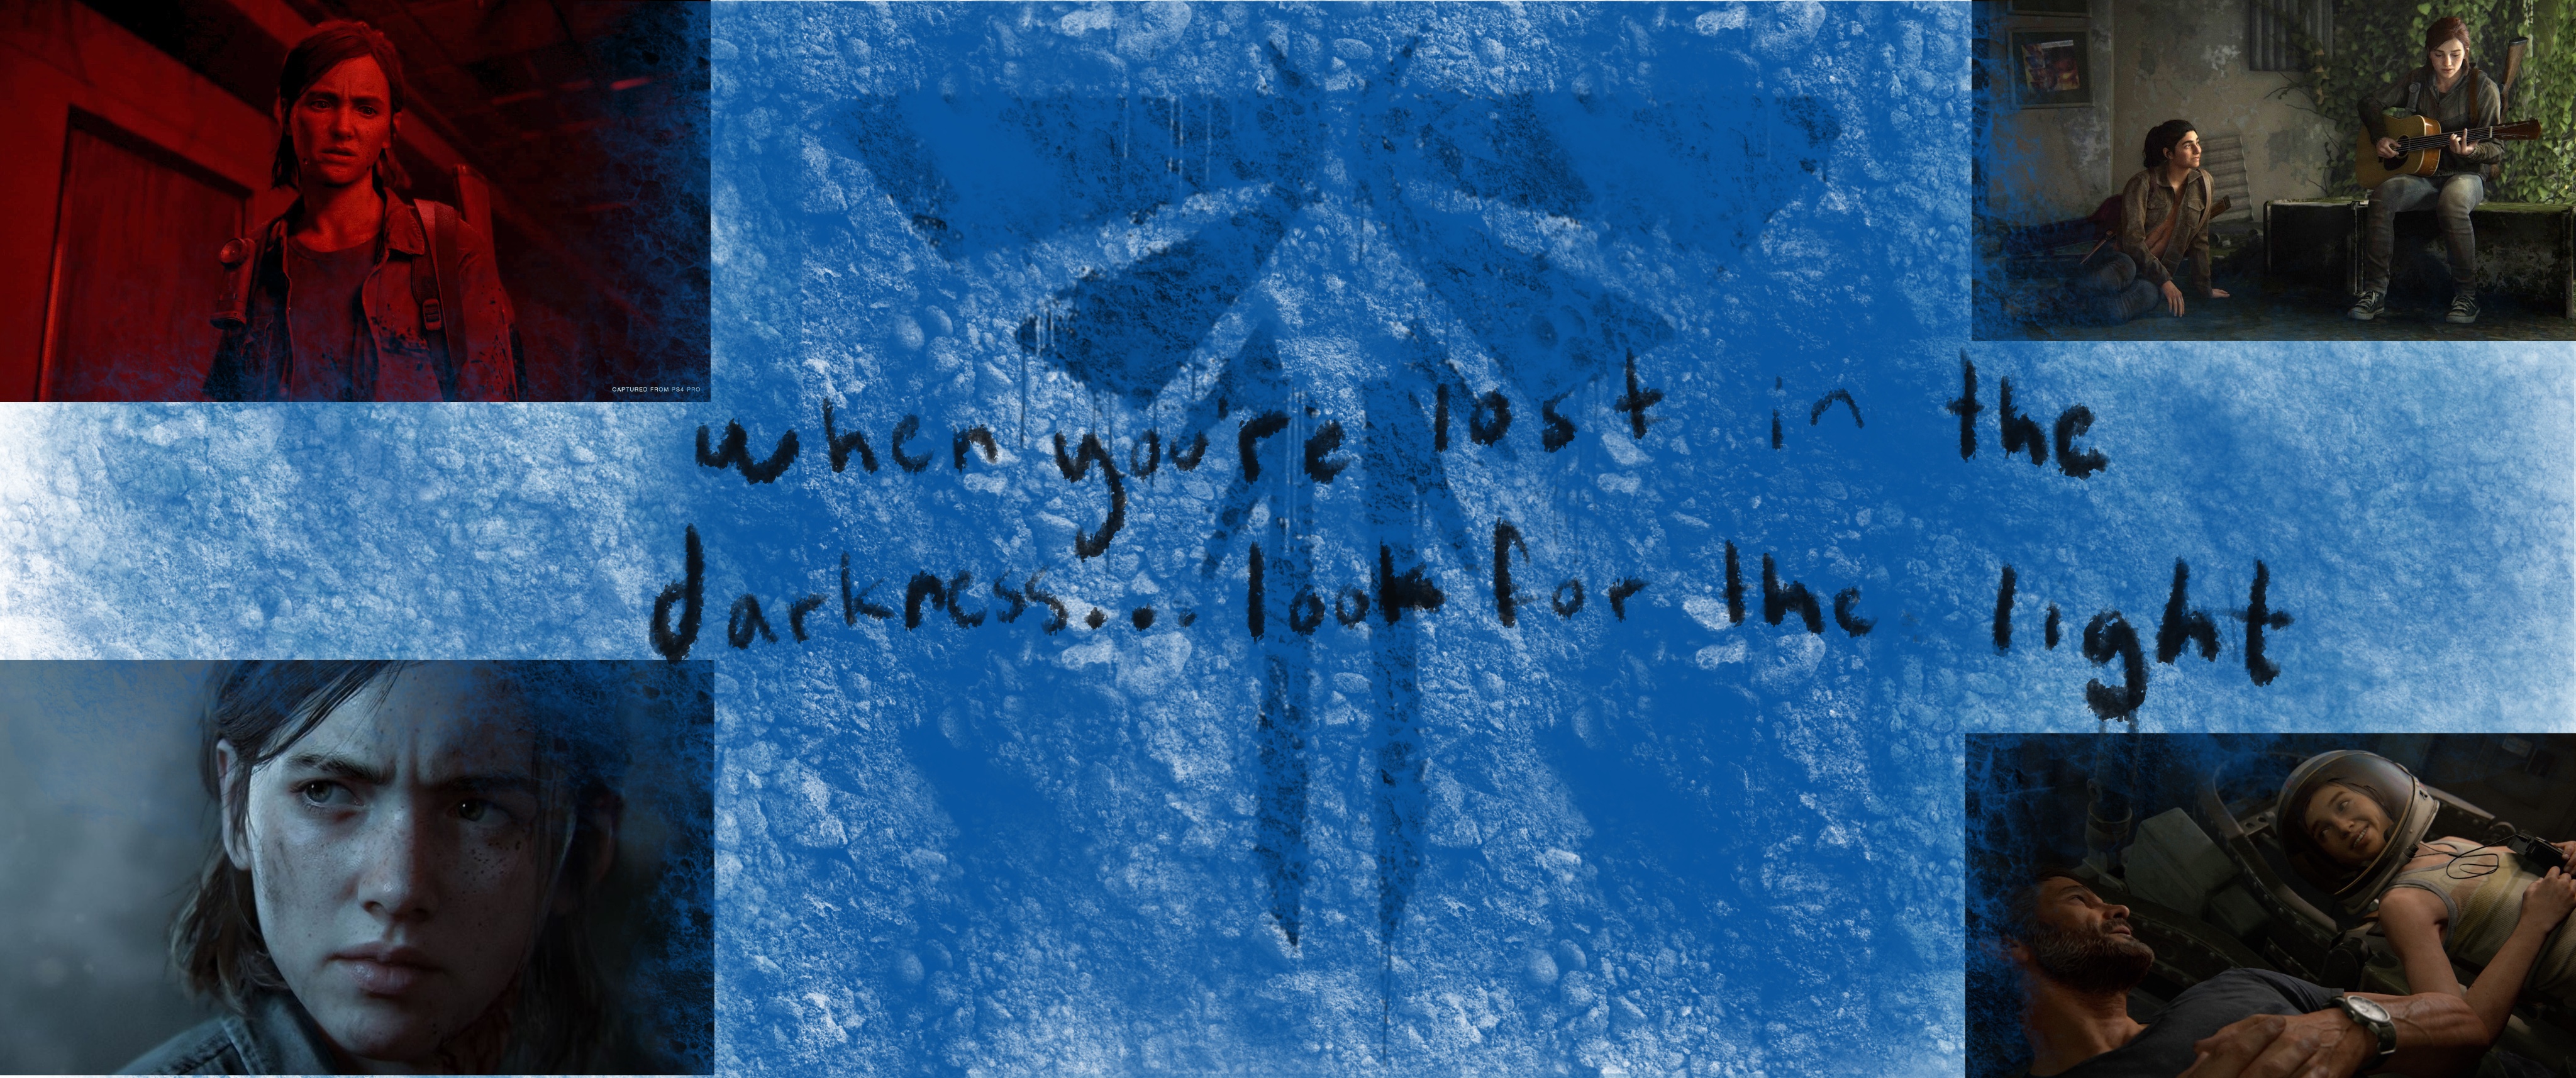 CAPTURED FROM PS4 PRO
when you're lost in the
darkness... look for the light